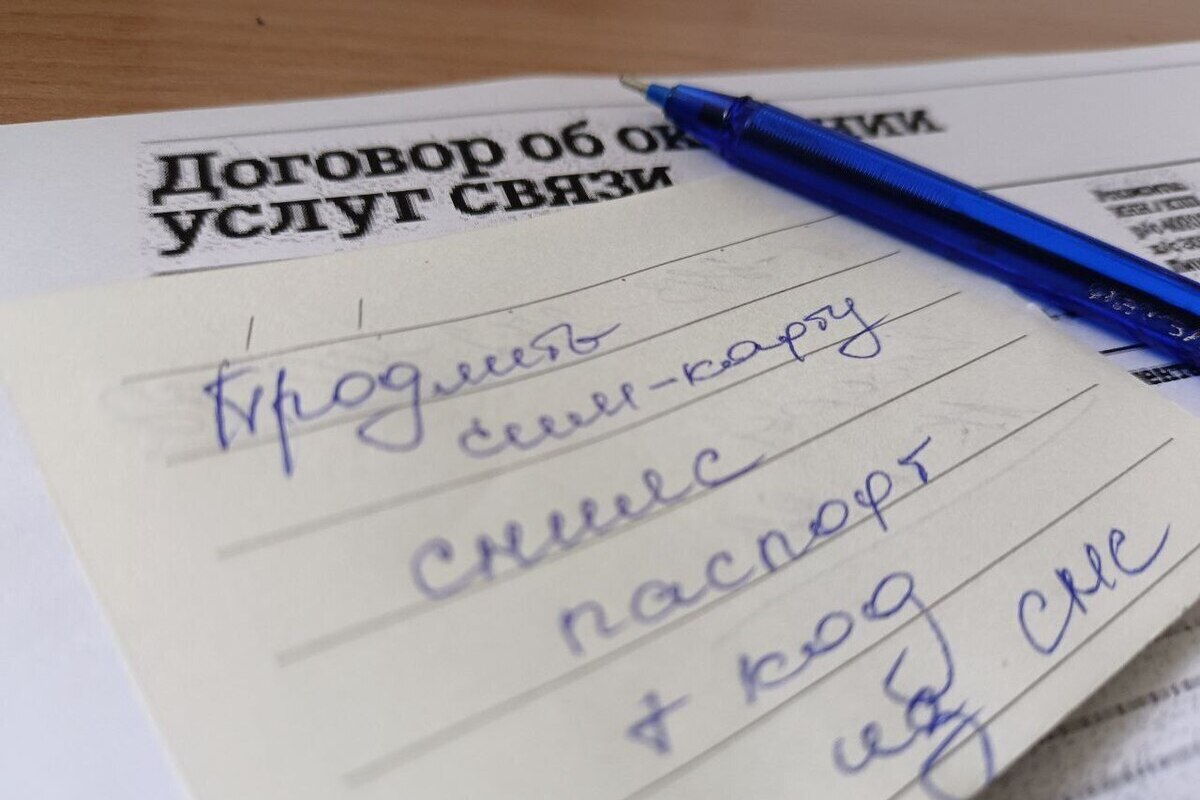 Договор об ок нии
услуг связи
Продлить
сим-карту
снилс
паспорт
+ код
из смс